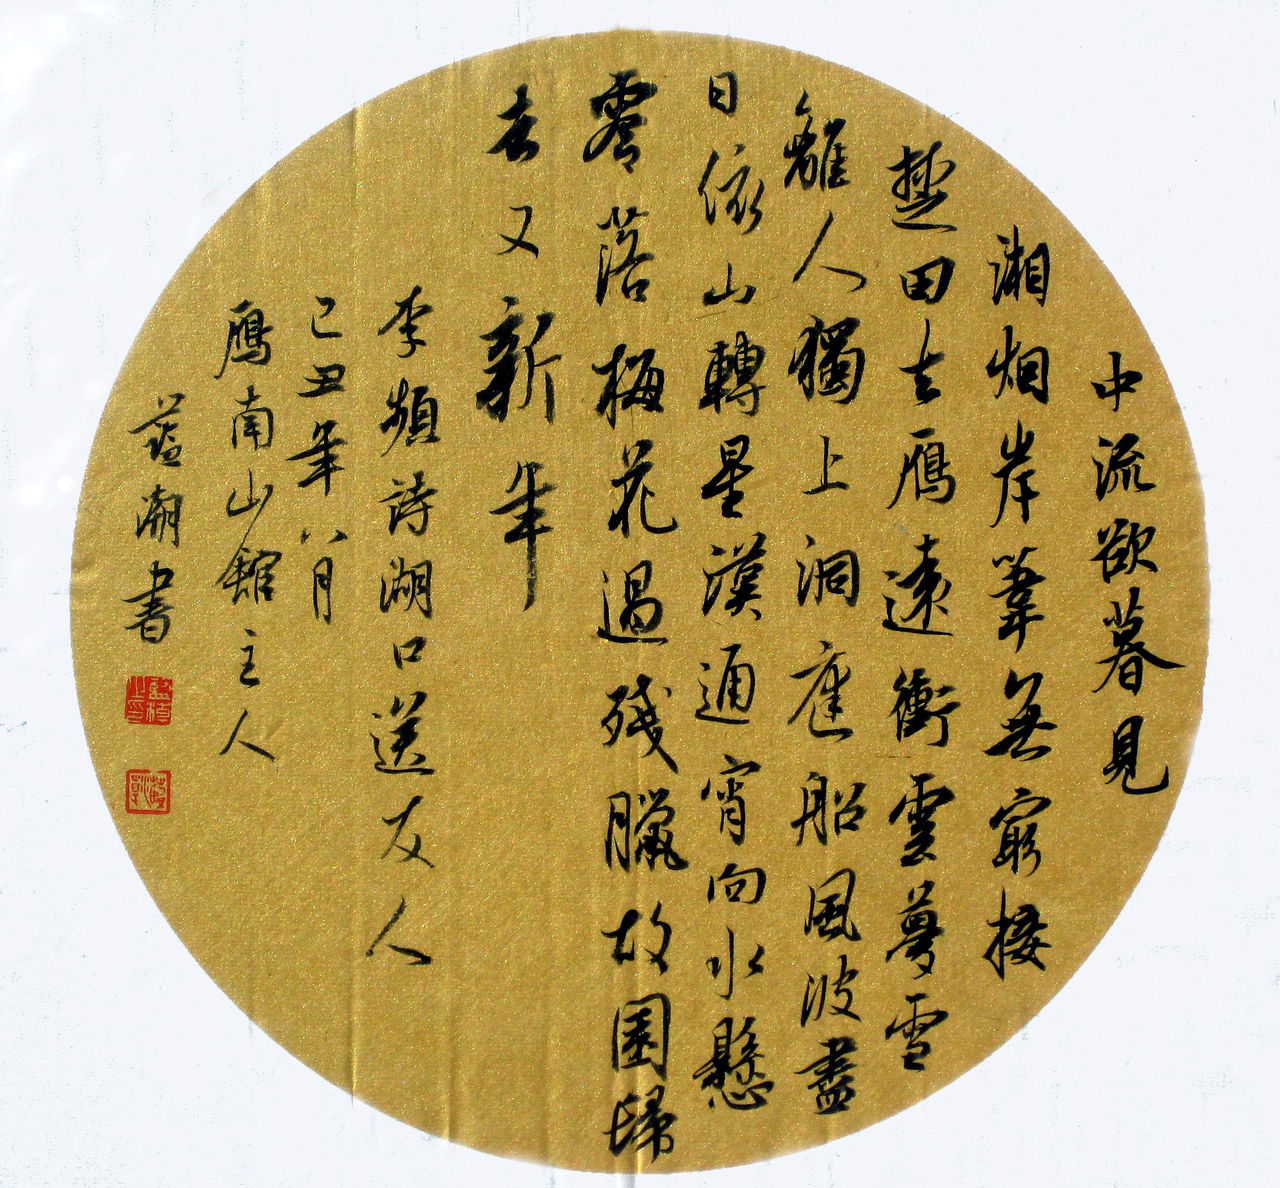 中流欲暮見
湘烟岸葦無窮接
楚田去鴈遠衝雲夢雪
離人獨上洞庭船風波盡
日依山轉星漢通宵向水懸
零落梅花過殘臘故園歸
去又新年
李頻詩湖口送友人
己丑年八月
鴈南山館主人
藍潮書